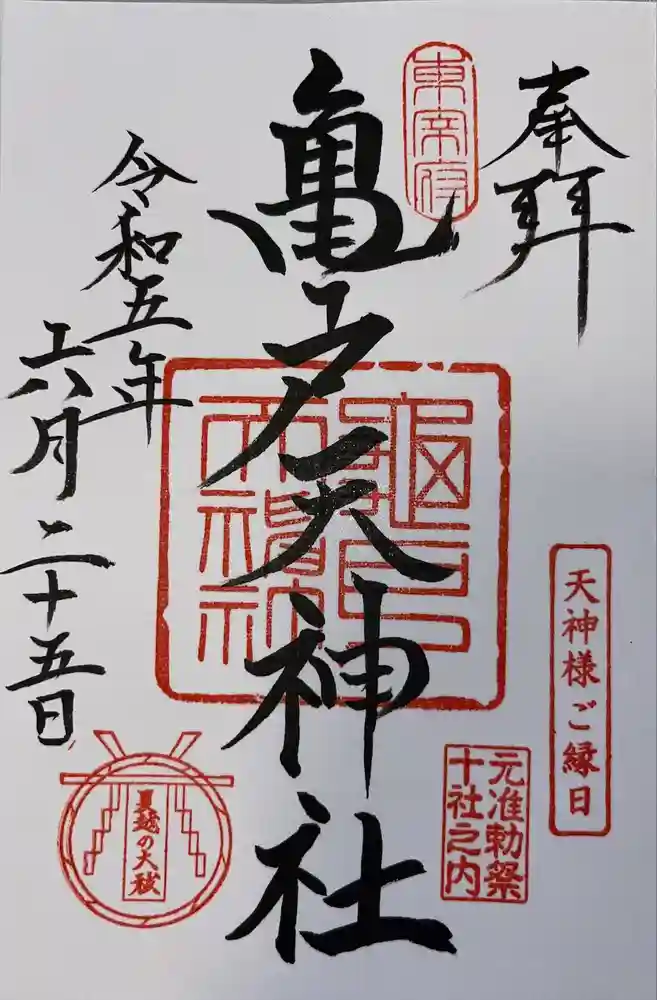 奉拝
東宰府
亀戸天神社
亀戸天神社
令和五年
六月二十五日
天神様ご縁日
元准勅祭
十社之内
夏越の大祓